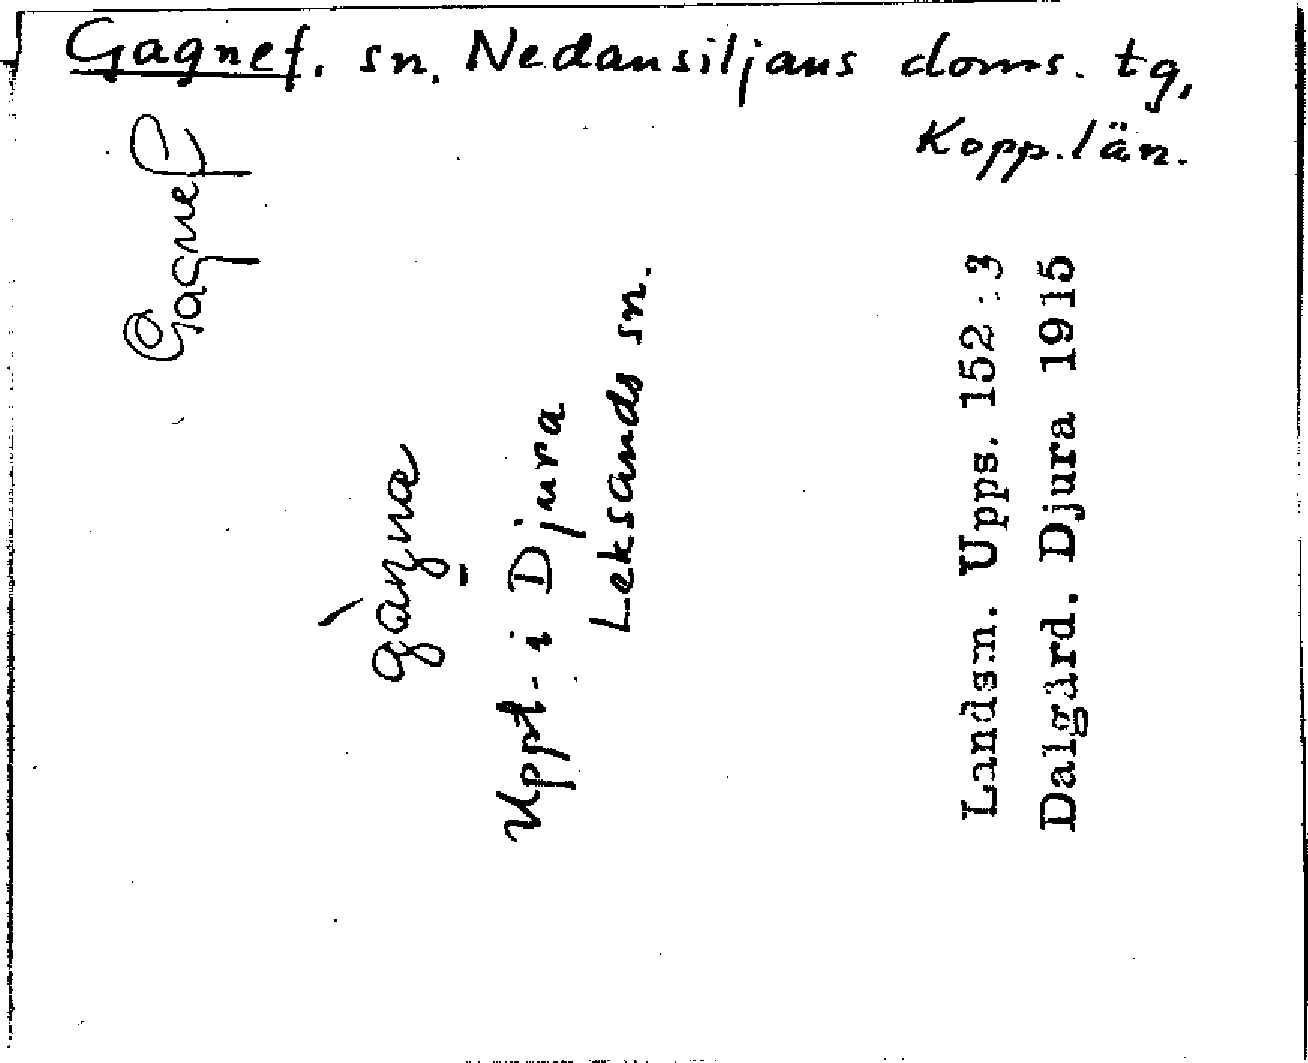 Gagnef. sn. Nedansiljans doms. tg,
Kopp.län.
Gagnef
Uppt. i Djura
Leksands sn.
Landsm. Upps. 152:3
Dalgård. Djura 1915